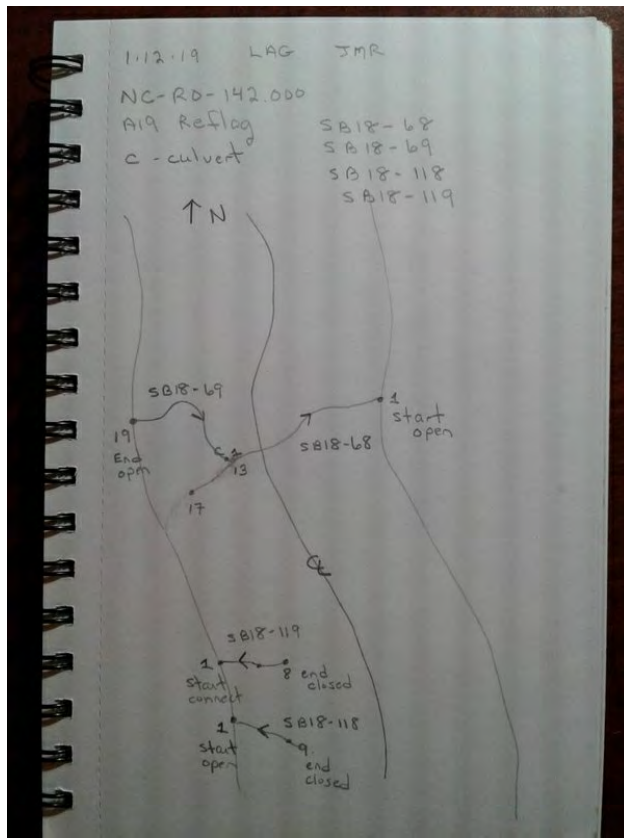 1.12.19 LAG JMR
NC-RD-142.000
A19 Reflog
C - culvert
SB18-68
SB18-69
SB18-118
SB18-119
↑ N
SB18-69
19
End
open
C 1
13
17
SB18-68
1
start
open
SB18-119
1
start
connect
8 end
closed
SB18-118
1
start
open
9
end
closed